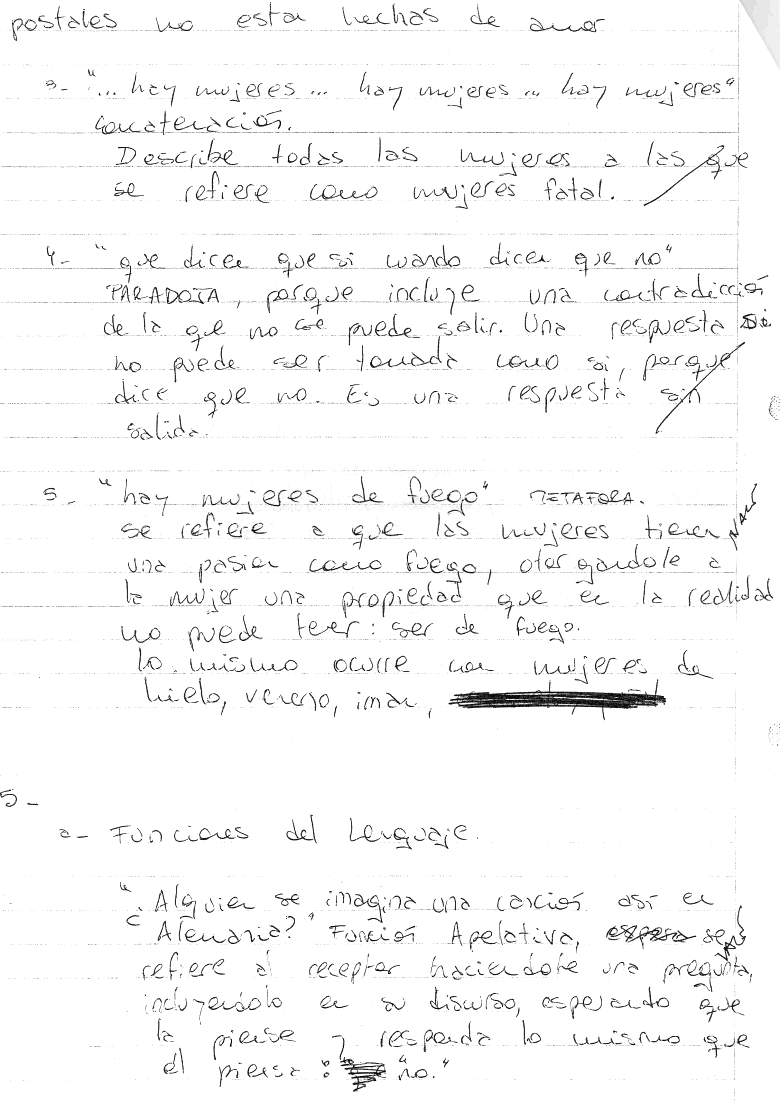 postales no estan hechas de amor
3- "... hay mujeres ... hay mujeres ... hay mujeres"
concatenación.
Describe todas las mujeres a las que
se refiere como mujeres fatal.
4- "que dicen que si cuando dicen que no"
PARADOJA, porque incluye una contradicción
de la que no se puede salir. Una respuesta
no puede ser tomada como si, porque
dice que no. Es una respuesta sin
salida.
5- "hay mujeres de fuego" METAFORA.
se refiere a que las mujeres tienen
una pasion como fuego, otorgandole a
la mujer una propiedad que en la realidad
no puede tener: ser de fuego.
lo mismo ocurre con mujeres de
hielo, veneno, iman,
5-
a- Funciones del Lenguaje.
"¿Alguien se imagina una canción así en
Alemania?" Función Apelativa, se
refiere al receptor haciendole una pregunta,
incluyendolo en su discurso, esperando que
la piense y responda lo mismo que
él piensa: "no."